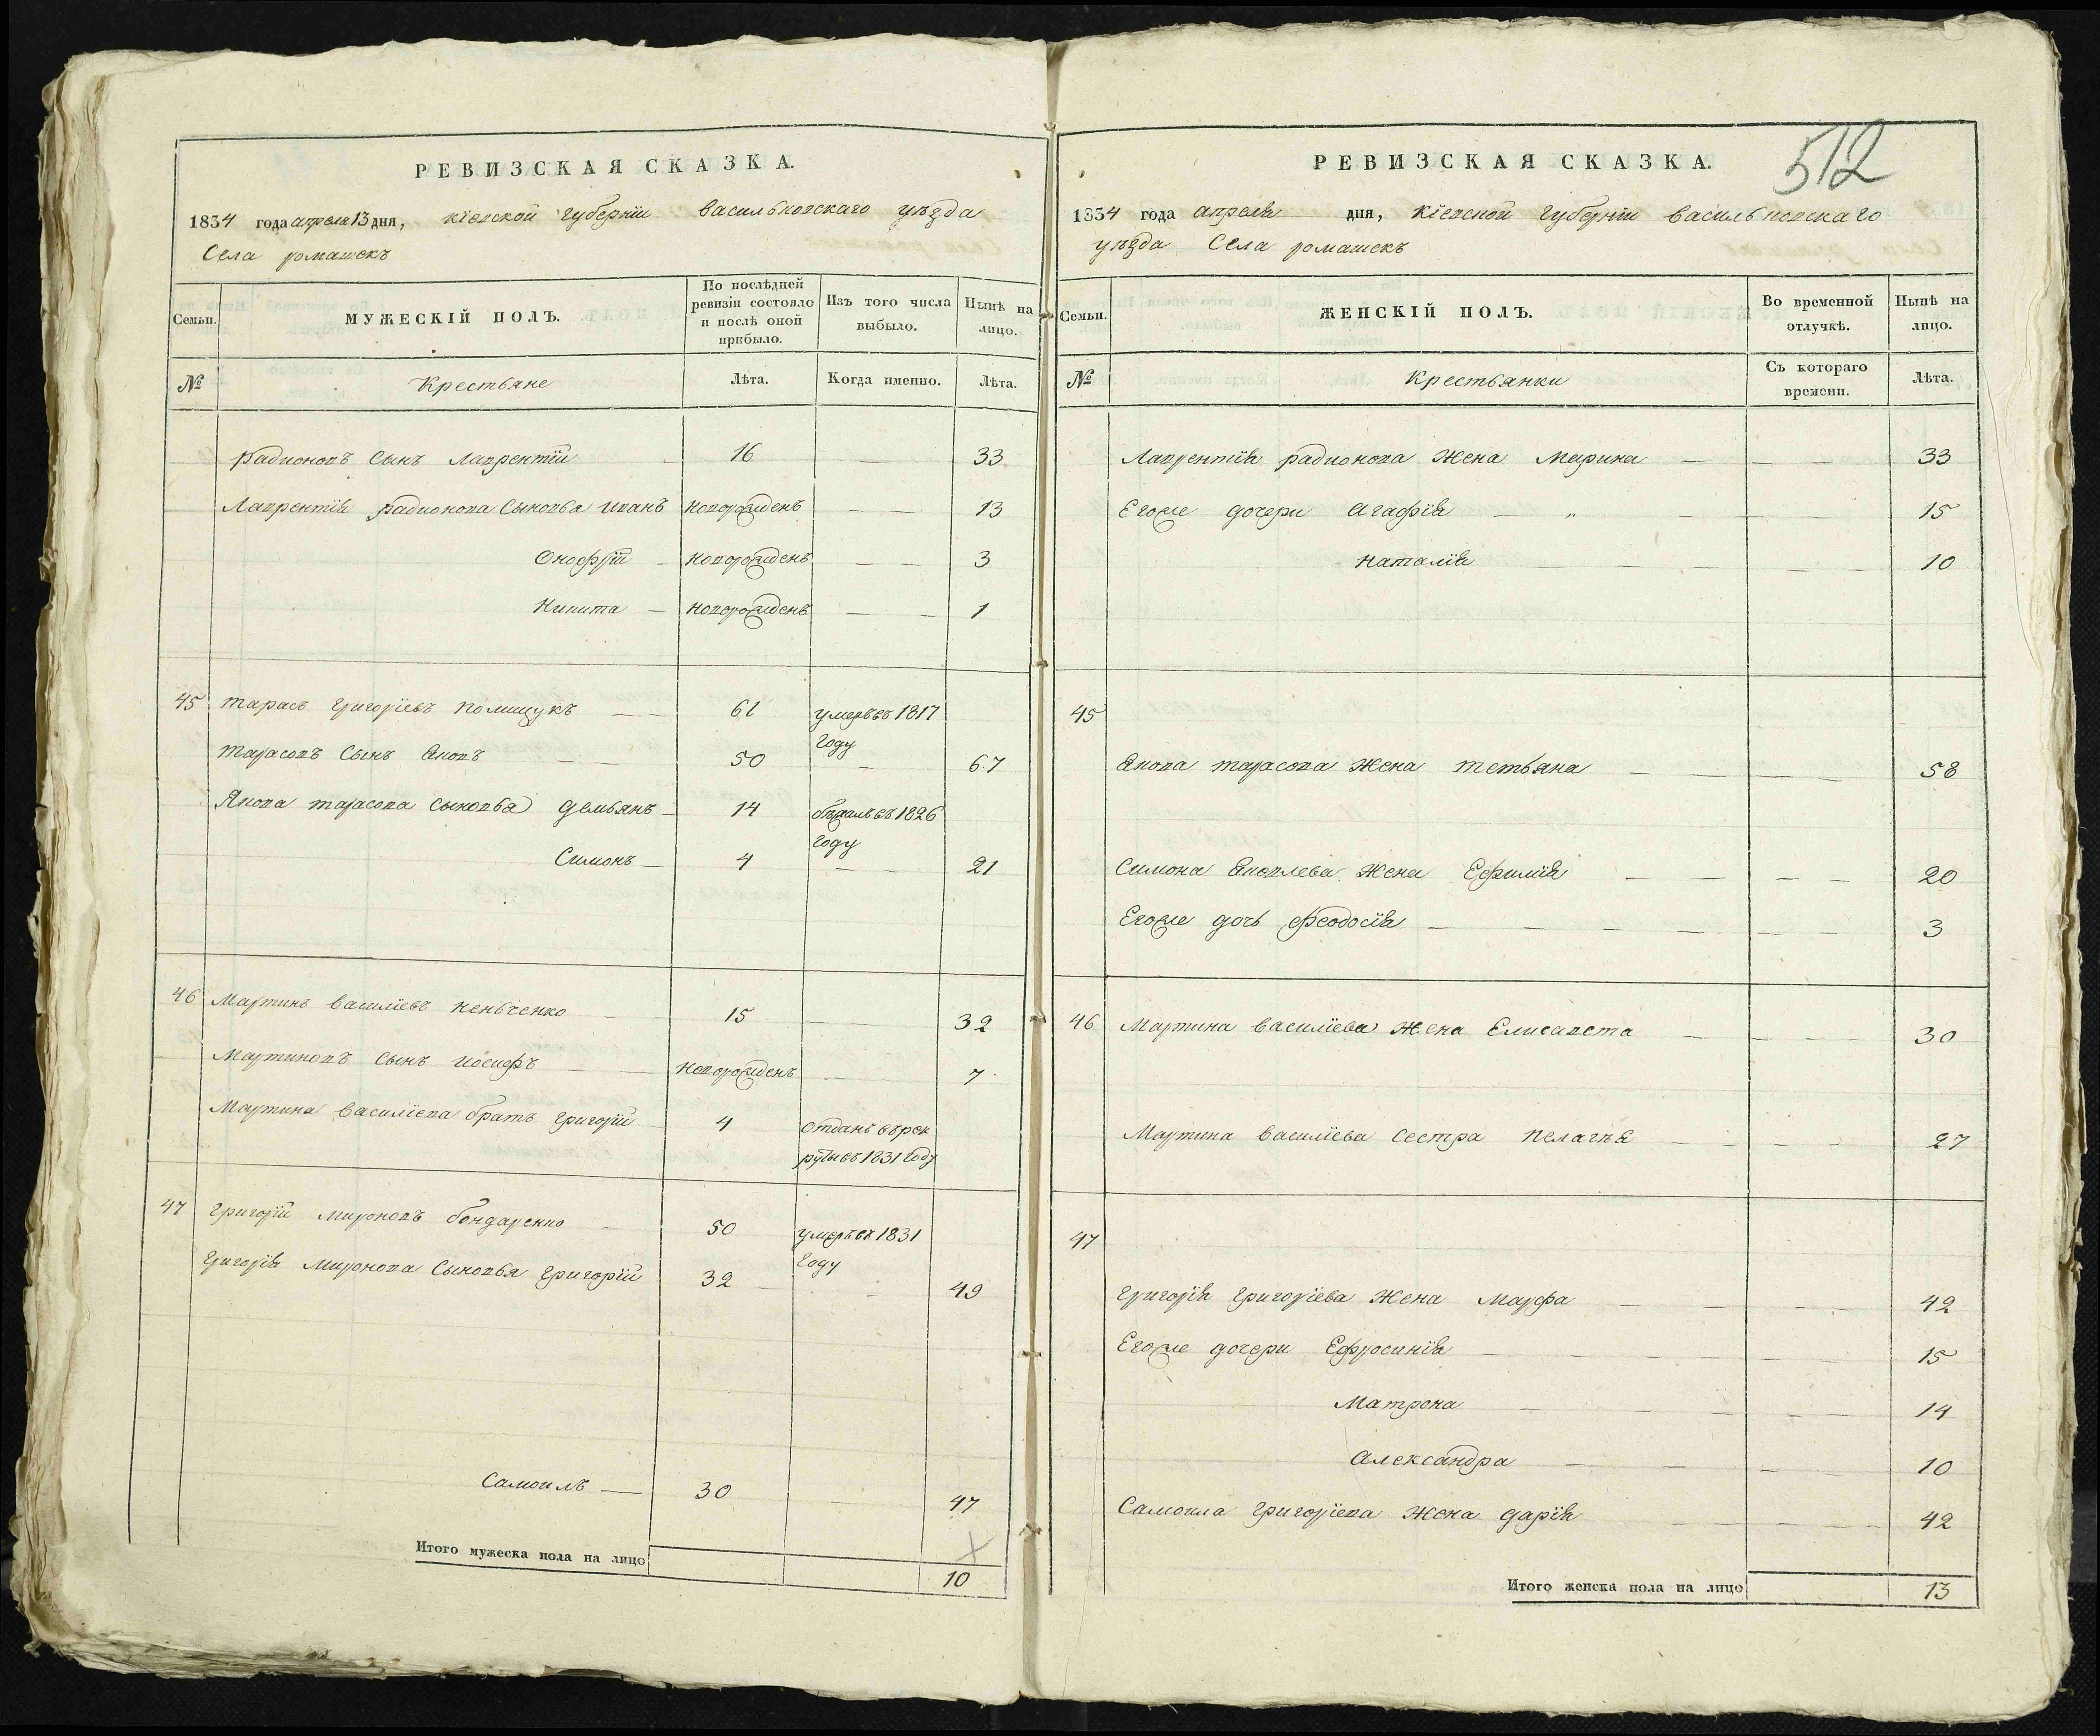 РЕВИЗСКАЯ СКАЗКА.
1834 года апреля 13 дня, кіевской губерніи васильковскаго уѣзда
Села ромашекъ
Семьи.
МУЖЕСКІЙ ПОЛЪ.
По послѣдней ревизіи состояло и послѣ оной прибыло.
Изъ того числа выбыло.
Нынѣ на лицо.
№
Крестьяне
Лѣта.
Когда именно.
Лѣта.
Радионовъ сынъ Лаврентій — 16 33
Лаврентія радионова сыновья иванъ новорожденъ — — 13
Онофрій — новорожденъ — — 3
Никита — новорожденъ — — 1
45 тарасъ григоріевъ полищукъ — — 61 умеръ въ 1817
году
тарасовъ сынъ Яковъ — — 50 — 67
Якова тарасова сыновья демьянъ — 14 бѣжалъ въ 1826
году
Симонъ — 4 — — 21
46 Мартинъ василіевъ кеньченко — 15 — 32
Мартиновъ сынъ иосифъ — — новорожденъ — 7
Мартина василіева братъ григорій — 4 отданъ въ рек
руты въ 1831 году
47 григорій мироновъ бондаренко — 50 умеръ въ 1831
году
григорія миронова сыновья григорій 32 — — 49
Самоилъ — 30 — 47
Итого мужеска пола на лицо 10
512
РЕВИЗСКАЯ СКАЗКА.
1834 года апреля дня, кіевской губерніи васильковскаго
уѣзда Села ромашекъ
Семьи.
ЖЕНСКІЙ ПОЛЪ.
Во временной отлучкѣ.
Нынѣ на лицо.
№
Крестьянки
Съ котораго времени.
Лѣта.
Лаврентія радионова жена Марина — — — 33
Егоже дочери агафія — „ — — — 15
наталія — — — — 10
45
Якова тарасова жена тетьяна — — — — 58
Симона Яковлева жена Ефимія — — — — — 20
Егоже дочь феодосія — — — — — — — 3
46 Мартина василіева жена Елисавета — — — 30
Мартина василіева сестра пелагѣя — — — — 27
47
григорія григоріева жена Марфа — — — — 42
Егоже дочери Ефросинія — — — — — — 15
Матрона — — — — — 14
александра — — — 10
Самоила григоріева жена дарія — — — — 42
Итого женска пола на лицо 13